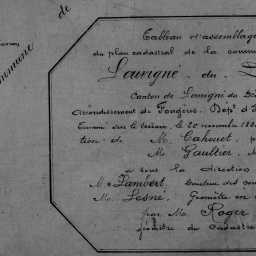 Commune de
Tableau d'assemblage
du plan cadastral de la comm
Louvigné . du .
Canton de Louvigné du Dé
Arrondissement de Fougères . Dép.t d'I
Terminé sur le terrain, le 20 novembre 18
tion de M. Cahouet, p
Mr Gaultier, M
a sous la direction
Mr Lambert, Directeur des con
Mr Lesné, Géomètre en
par Mr Roger
géomètre du cadastre